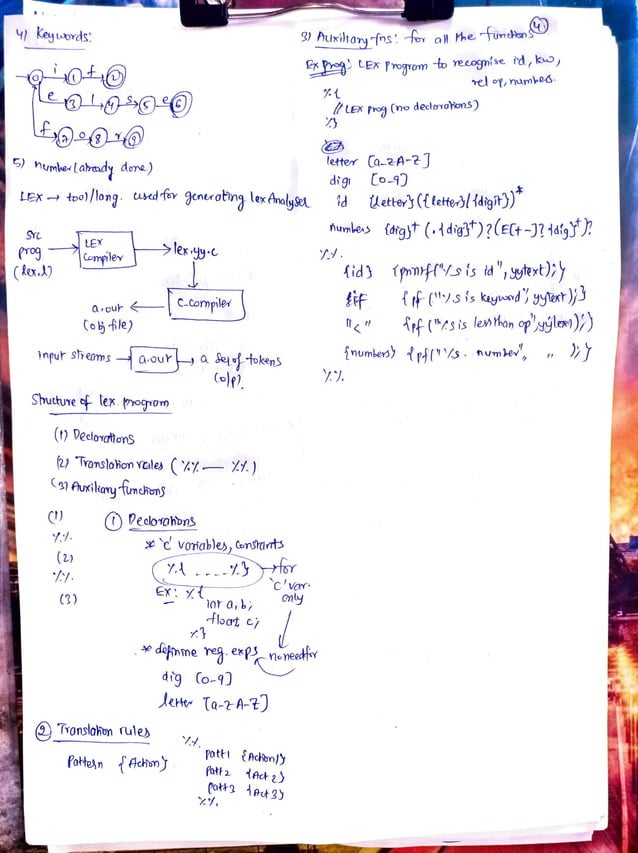 4) Keywords:
0 i 1 f 2
e 3 l 4 s 5 e 6
f 7 o 8 r 9
5) number (already done)
LEX → tool/lang. used for generating lex Analyser
Src prog (lex.l) → LEX Compiler → lex.yy.c
a.out (obj file) ← C-compiler
input streams → a.out → a set of tokens (o/p)
Structure of lex program
(1) Declarations
(2) Translation rules (%% — %%)
(3) Auxiliary functions
(1)
%%
(2)
%%
(3)
① Declarations
* 'C' variables, constants
%{ .... %} → for 'C' var. only
Ex: %{
int a, b;
float c;
%}
* definine reg. exps no need for
dig [0-9]
letter [a-zA-Z]
② Translation rules
Pattern {Action}
%%
Patt1 {Action1}
Patt2 {Act2}
Patt3 {Act3}
%%
4
3) Auxilary-fns: for all the functions
Ex prog: LEX program to recognise id, kw,
rel op, numbers.
%{
// LEX prog (no declarations)
%}
letter [a-zA-Z]
digi [0-9]
id {letter}({letter}/{digit})*
numbers {dig}+ (.{dig}+)?(E[+-]?{dig}+)?
%%
{id} {printf("%s is id", yytext);}
if {pf("%s is keyword", yytext);}
"<" {pf("%s is less than op", yytext);}
{numbers} {pf("%s. number", " );}
%%